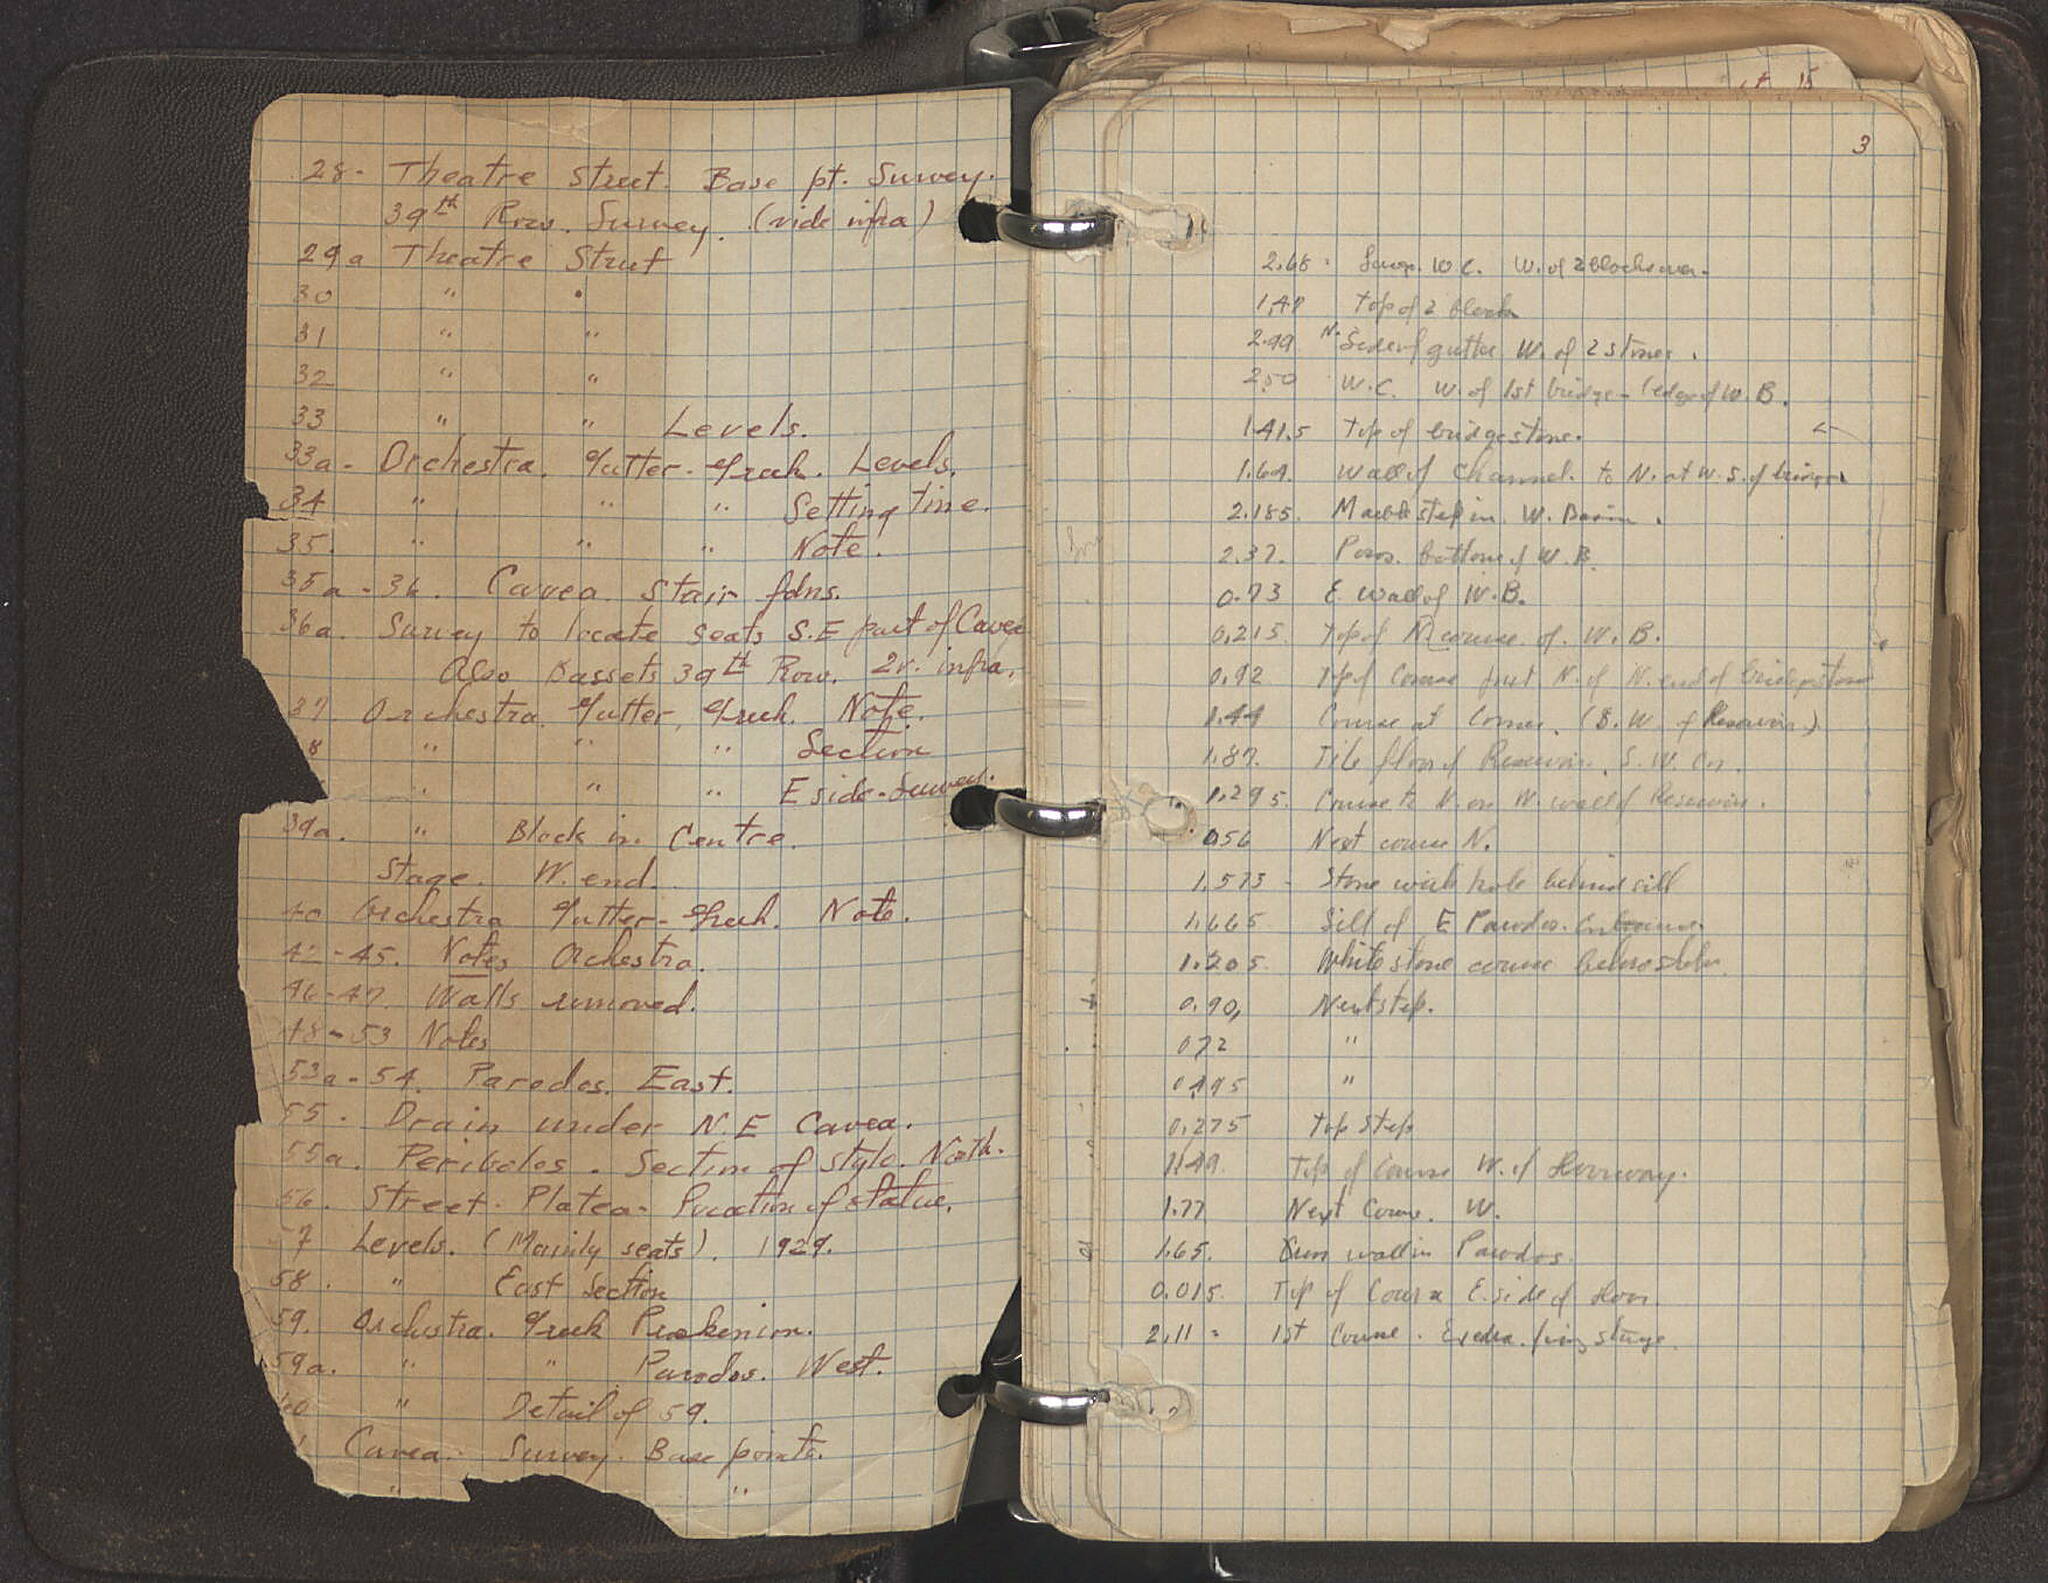 28- Theatre Street. Base pt. Survey.
39th Row. Survey. (vide infra)
29a Theatre Street
30 " "
31 " "
32 " "
33 " " Levels.
33a- Orchestra. Gutter-Greek. Levels.
34 " " " Setting line.
35. " " " Note.
35a-36. Cavea. Stair fdns.
36a. Survey to locate seats S.E part of Cavea
Also Bassets 39th Row. 2v. infra.
37 Orchestra. Gutter, Greek. Note.
8 " " " Section
" " " E side-Survey.
39a. " Block in Centre.
Stage. W. end.
40 Orchestra Gutter-Greek. Note.
42-45. Notes Orchestra.
46-47. Walls removed.
48-53 Notes
53a-54. Parodos. East.
55. Drain under N.E Cavea.
55a. Peribolos. Section of stylo. North.
56. Street. Platea- Location of statue.
57 Levels. (Mainly seats). 1929.
58. " East Section
59. Orchestra. Greek Proskenion.
59a. " " Parodos. West.
60 " Detail of 59.
Cavea. Survey. Base points.
" "
3
2.68 W.C. W. of 2 blocks
1.47 top of 2 blocks
2.99 N. Side of gutter W. of 2 stones.
2.50 W.C. W. of 1st bridge- (edge of W.B.
1.41.5 Top of bridgestone.
1.64. Wall of Channel. to N. at W.S. of
2.185. Marble step in W. Basin.
2.37. Poros. bottom of W.B.
0.73 E. wall of W.B.
0.215. Top of N. course of W.B.
0.92 Top of Course just N. of N. end of bridgestone
1.44 Course at Corner. (S.W. of Reservoir)
1.87. Tile floor of Reservoir. S.W. Cor.
1.295. Course to N. on W. wall of Reservoir.
056 Next course N.
1.573 - Stone with hole behind sill
1.665 Sill of E Parodos. Entrance
1.205. White stone course
0.90, Next step.
072 "
0.495 "
0.275 Top Step
1.49. Top of Course W. of doorway.
1.77 Next Course. W.
1.65. wall in Parodos.
0.015. Top of Course E. side of door.
2.11 - 1st Course. Exedra. stage.